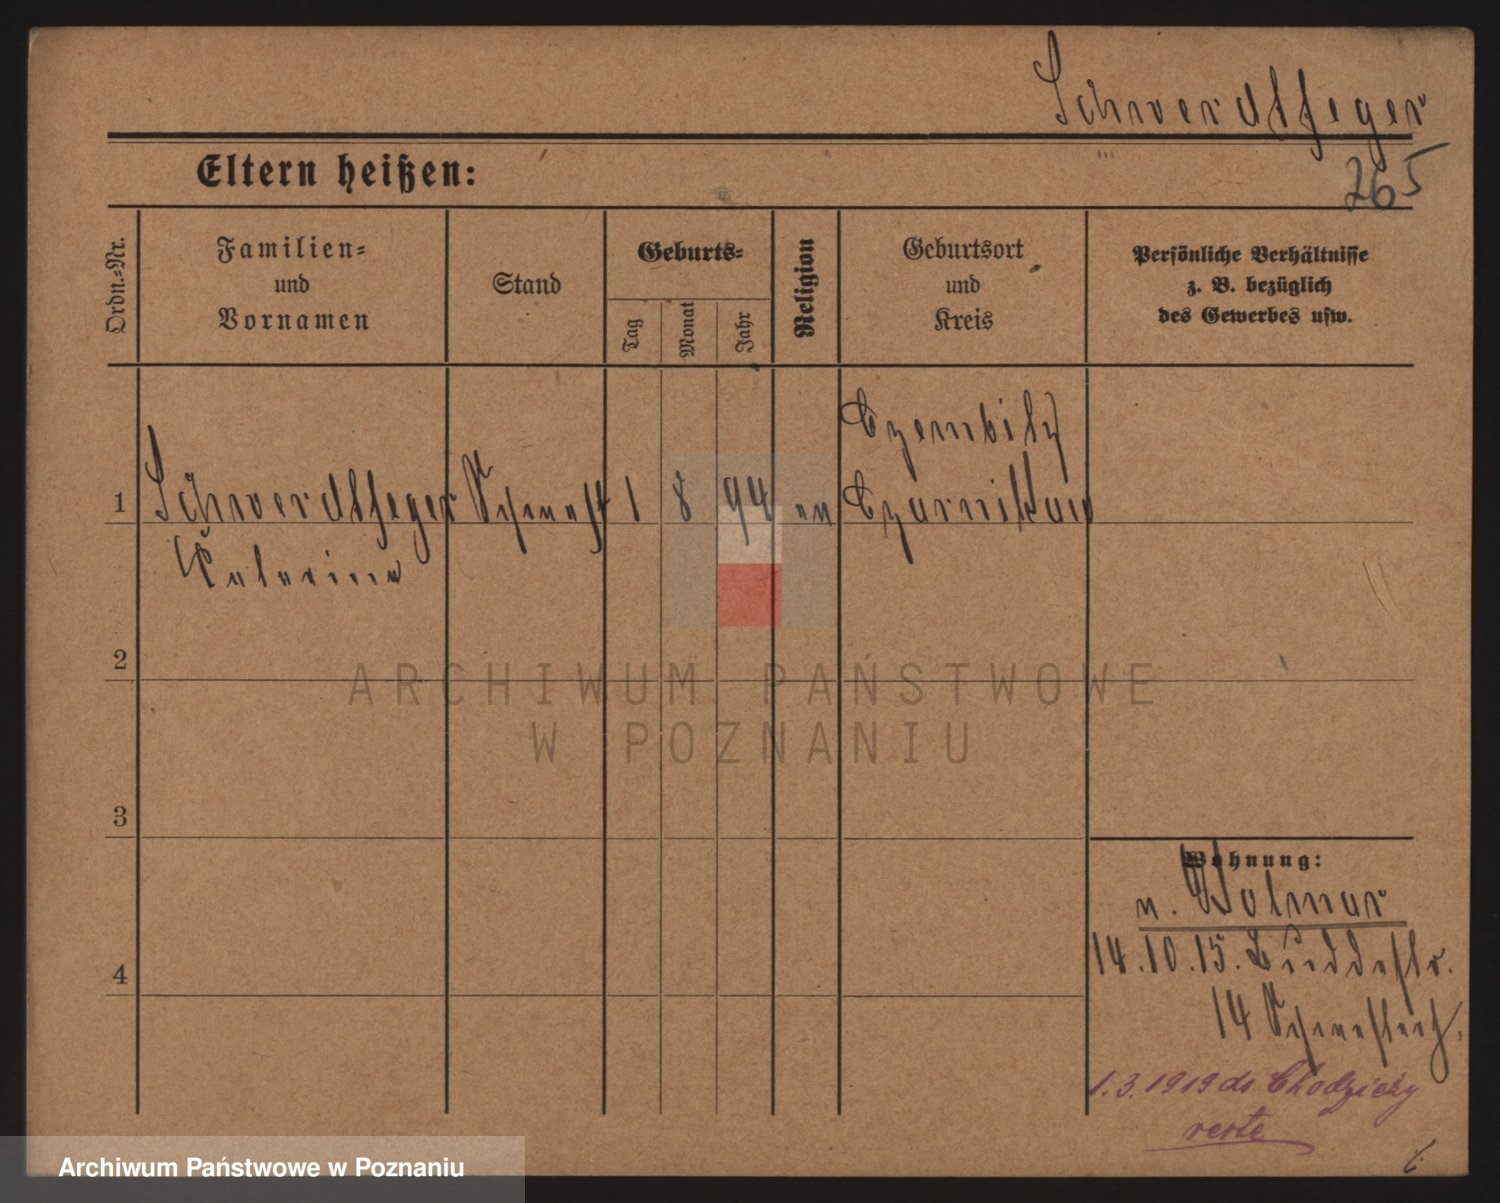 Schwerdtfeger
Eltern heißen:
265
Ordn.-Nr.
Familien-
und
Vornamen
Stand
Geburts-
Tag
Monat
Jahr
Religion
Geburtsort
und
Kreis
Persönliche Verhältnisse
z. B. bezüglich
des Gewerbes usw.
1
Schwerdtfeger
1 8 94
Czarnikau
2
3
4
ARCHIWUM PAŃSTWOWE
W POZNANIU
Wohnung:
14.10.15.
14
1.3.1919 do Chodzieży
Archiwum Państwowe w Poznaniu